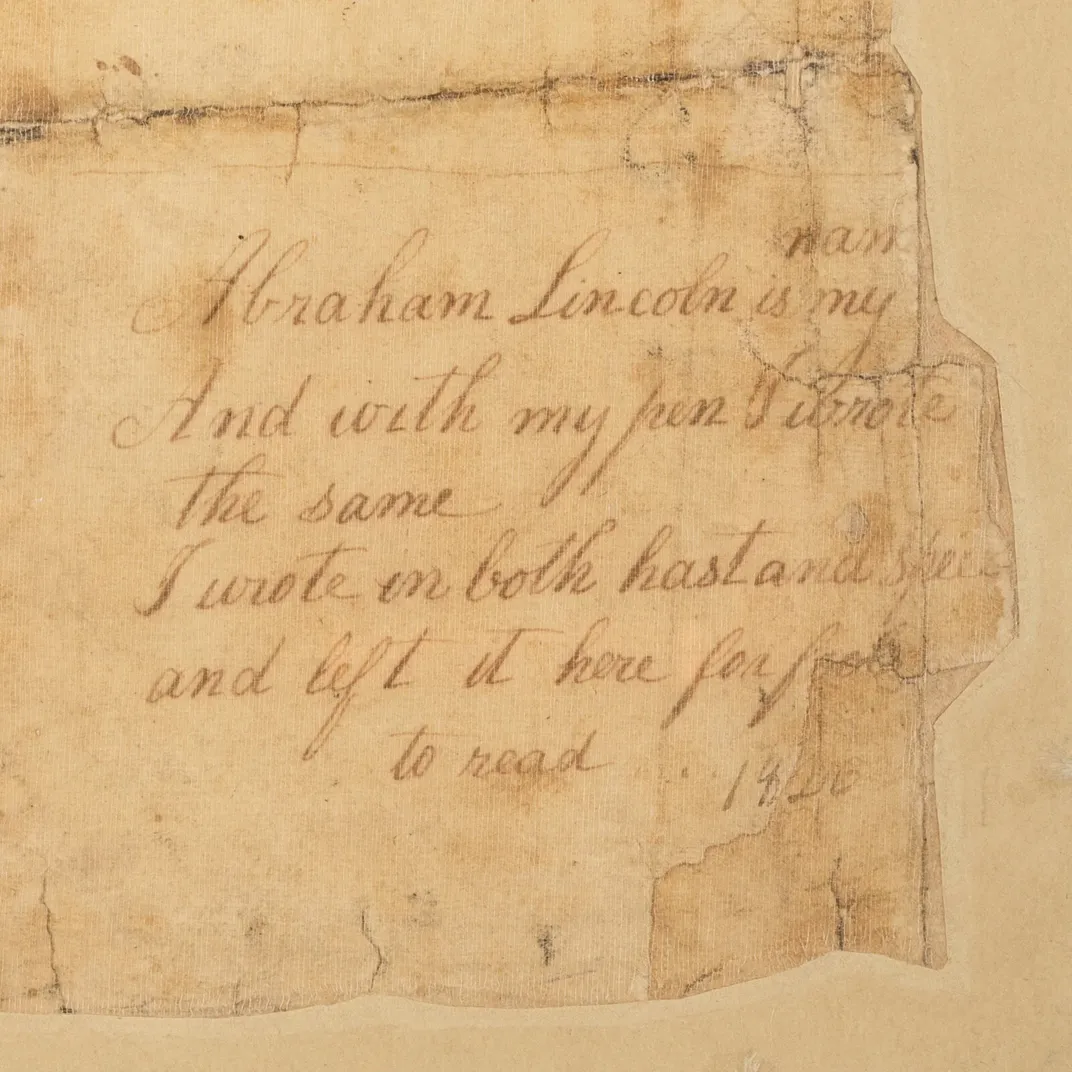 nam
Abraham Lincoln is my
And with my pen I wrote
the same
I wrote in both hast and spee
and left it here for fools
to read
1820